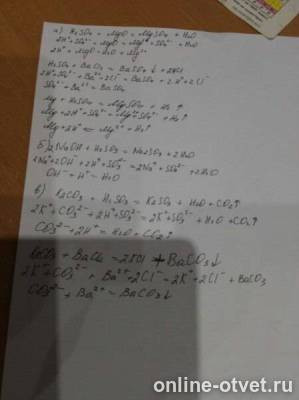 а) H₂SO₄ + MgO = MgSO₄ + H₂O
2H⁺ + SO₄²⁻ + MgO = Mg²⁺ + SO₄²⁻ + H₂O
2H⁺ + MgO = H₂O + Mg²⁺
H₂SO₄ + BaCl₂ = BaSO₄↓ + 2HCl
2H⁺ + SO₄²⁻ + Ba²⁺ + 2Cl⁻ = BaSO₄ + 2H⁺ + 2Cl⁻
SO₄²⁻ + Ba²⁺ = BaSO₄
Mg + H₂SO₄ = MgSO₄ + H₂↑
Mg + 2H⁺ + SO₄²⁻ = Mg²⁺ + SO₄²⁻ + H₂↑
Mg + 2H⁺ = Mg²⁺ + H₂↑
б) 2NaOH + H₂SO₄ = Na₂SO₄ + 2H₂O
2Na⁺ + 2OH⁻ + 2H⁺ + SO₄²⁻ = 2Na⁺ + SO₄²⁻ + 2H₂O
OH⁻ + H⁺ = H₂O
в) K₂CO₃ + H₂SO₄ = K₂SO₄ + H₂O + CO₂↑
2K⁺ + CO₃²⁻ + 2H⁺ + SO₄²⁻ = 2K⁺ + SO₄²⁻ + H₂O + CO₂↑
CO₃²⁻ + 2H⁺ = H₂O + CO₂↑
K₂CO₃ + BaCl₂ = 2KCl + BaCO₃↓
2K⁺ + CO₃²⁻ + Ba²⁺ + 2Cl⁻ = 2K⁺ + 2Cl⁻ + BaCO₃
CO₃²⁻ + Ba²⁺ = BaCO₃↓
online-otvet.ru